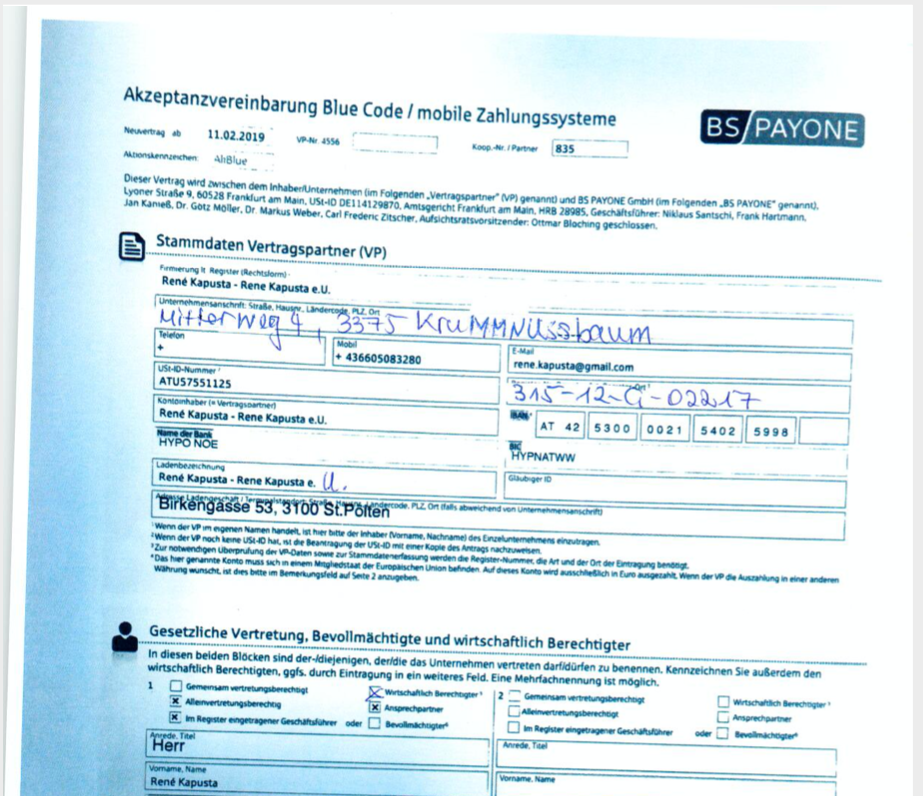 Akzeptanzvereinbarung Blue Code / mobile Zahlungssysteme
BS PAYONE
Neuvertrag ab 11.02.2019 VP-Nr. 4556 Koop.-Nr. / Partner 835
Aktionskennzeichen: AliBlue
Dieser Vertrag wird zwischen dem Inhaber/Unternehmen (im Folgenden „Vertragspartner" (VP) genannt) und BS PAYONE GmbH (im Folgenden „BS PAYONE" genannt),
Lyoner Straße 9, 60528 Frankfurt am Main, USt-ID DE114129870, Amtsgericht Frankfurt am Main, HRB 28985, Geschäftsführer: Niklaus Santschi, Frank Hartmann,
Jan Kanieß, Dr. Götz Möller, Dr. Markus Weber, Carl Frederic Zitscher, Aufsichtsratsvorsitzender: Ottmar Bloching geschlossen.
Stammdaten Vertragspartner (VP)
Firmierung lt. Register (Rechtsform)
René Kapusta - Rene Kapusta e.U.
Unternehmensanschrift: Straße, Hausnr., Ländercode, PLZ, Ort
Mitterweg 4, 3375 Krummnussbaum
Telefon
+
Mobil
+ 436605083280
E-Mail
rene.kapusta@gmail.com
USt-ID-Nummer
ATU57551125
315-12-G-02217
Kontoinhaber (= Vertragspartner)
René Kapusta - Rene Kapusta e.U.
IBAN
AT 42 5300 0021 5402 5998
Name der Bank
HYPO NOE
BIC
HYPNATWW
Ladenbezeichnung
René Kapusta - Rene Kapusta e. U.
Gläubiger ID
Adresse Ladengeschäft / Terminalstandort: Straße, Hausnr., Ländercode, PLZ, Ort (falls abweichend von Unternehmensanschrift)
Birkengasse 53, 3100 St.Pölten
¹Wenn der VP im eigenen Namen handelt, ist hier bitte der Inhaber (Vorname, Nachname) des Einzelunternehmens einzutragen.
²Wenn der VP noch keine USt-ID hat, ist die Beantragung der USt-ID mit einer Kopie des Antrags nachzuweisen.
³Zur notwendigen Überprüfung der VP-Daten sowie zur Stammdatenerfassung werden die Register-Nummer, die Art und der Ort der Eintragung benötigt.
⁴Das hier genannte Konto muss sich in einem Mitgliedstaat der Europäischen Union befinden. Auf dieses Konto wird ausschließlich in Euro ausgezahlt. Wenn der VP die Auszahlung in einer anderen
Währung wünscht, ist dies bitte im Bemerkungsfeld auf Seite 2 anzugeben.
Gesetzliche Vertretung, Bevollmächtigte und wirtschaftlich Berechtigter
In diesen beiden Blöcken sind der-/diejenigen, der/die das Unternehmen vertreten darf/dürfen zu benennen. Kennzeichnen Sie außerdem den
wirtschaftlich Berechtigten, ggfs. durch Eintragung in ein weiteres Feld. Eine Mehrfachnennung ist möglich.
1 Gemeinsam vertretungsberechtigt Wirtschaftlich Berechtigter⁵
Alleinvertretungsberechtig Ansprechpartner
Im Register eingetragener Geschäftsführer oder Bevollmächtigter⁶
2 Gemeinsam vertretungsberechtigt Wirtschaftlich Berechtigter⁵
Alleinvertretungsberechtigt Ansprechpartner
Im Register eingetragener Geschäftsführer oder Bevollmächtigter⁶
Anrede, Titel
Herr
Anrede, Titel
Vorname, Name
René Kapusta
Vorname, Name